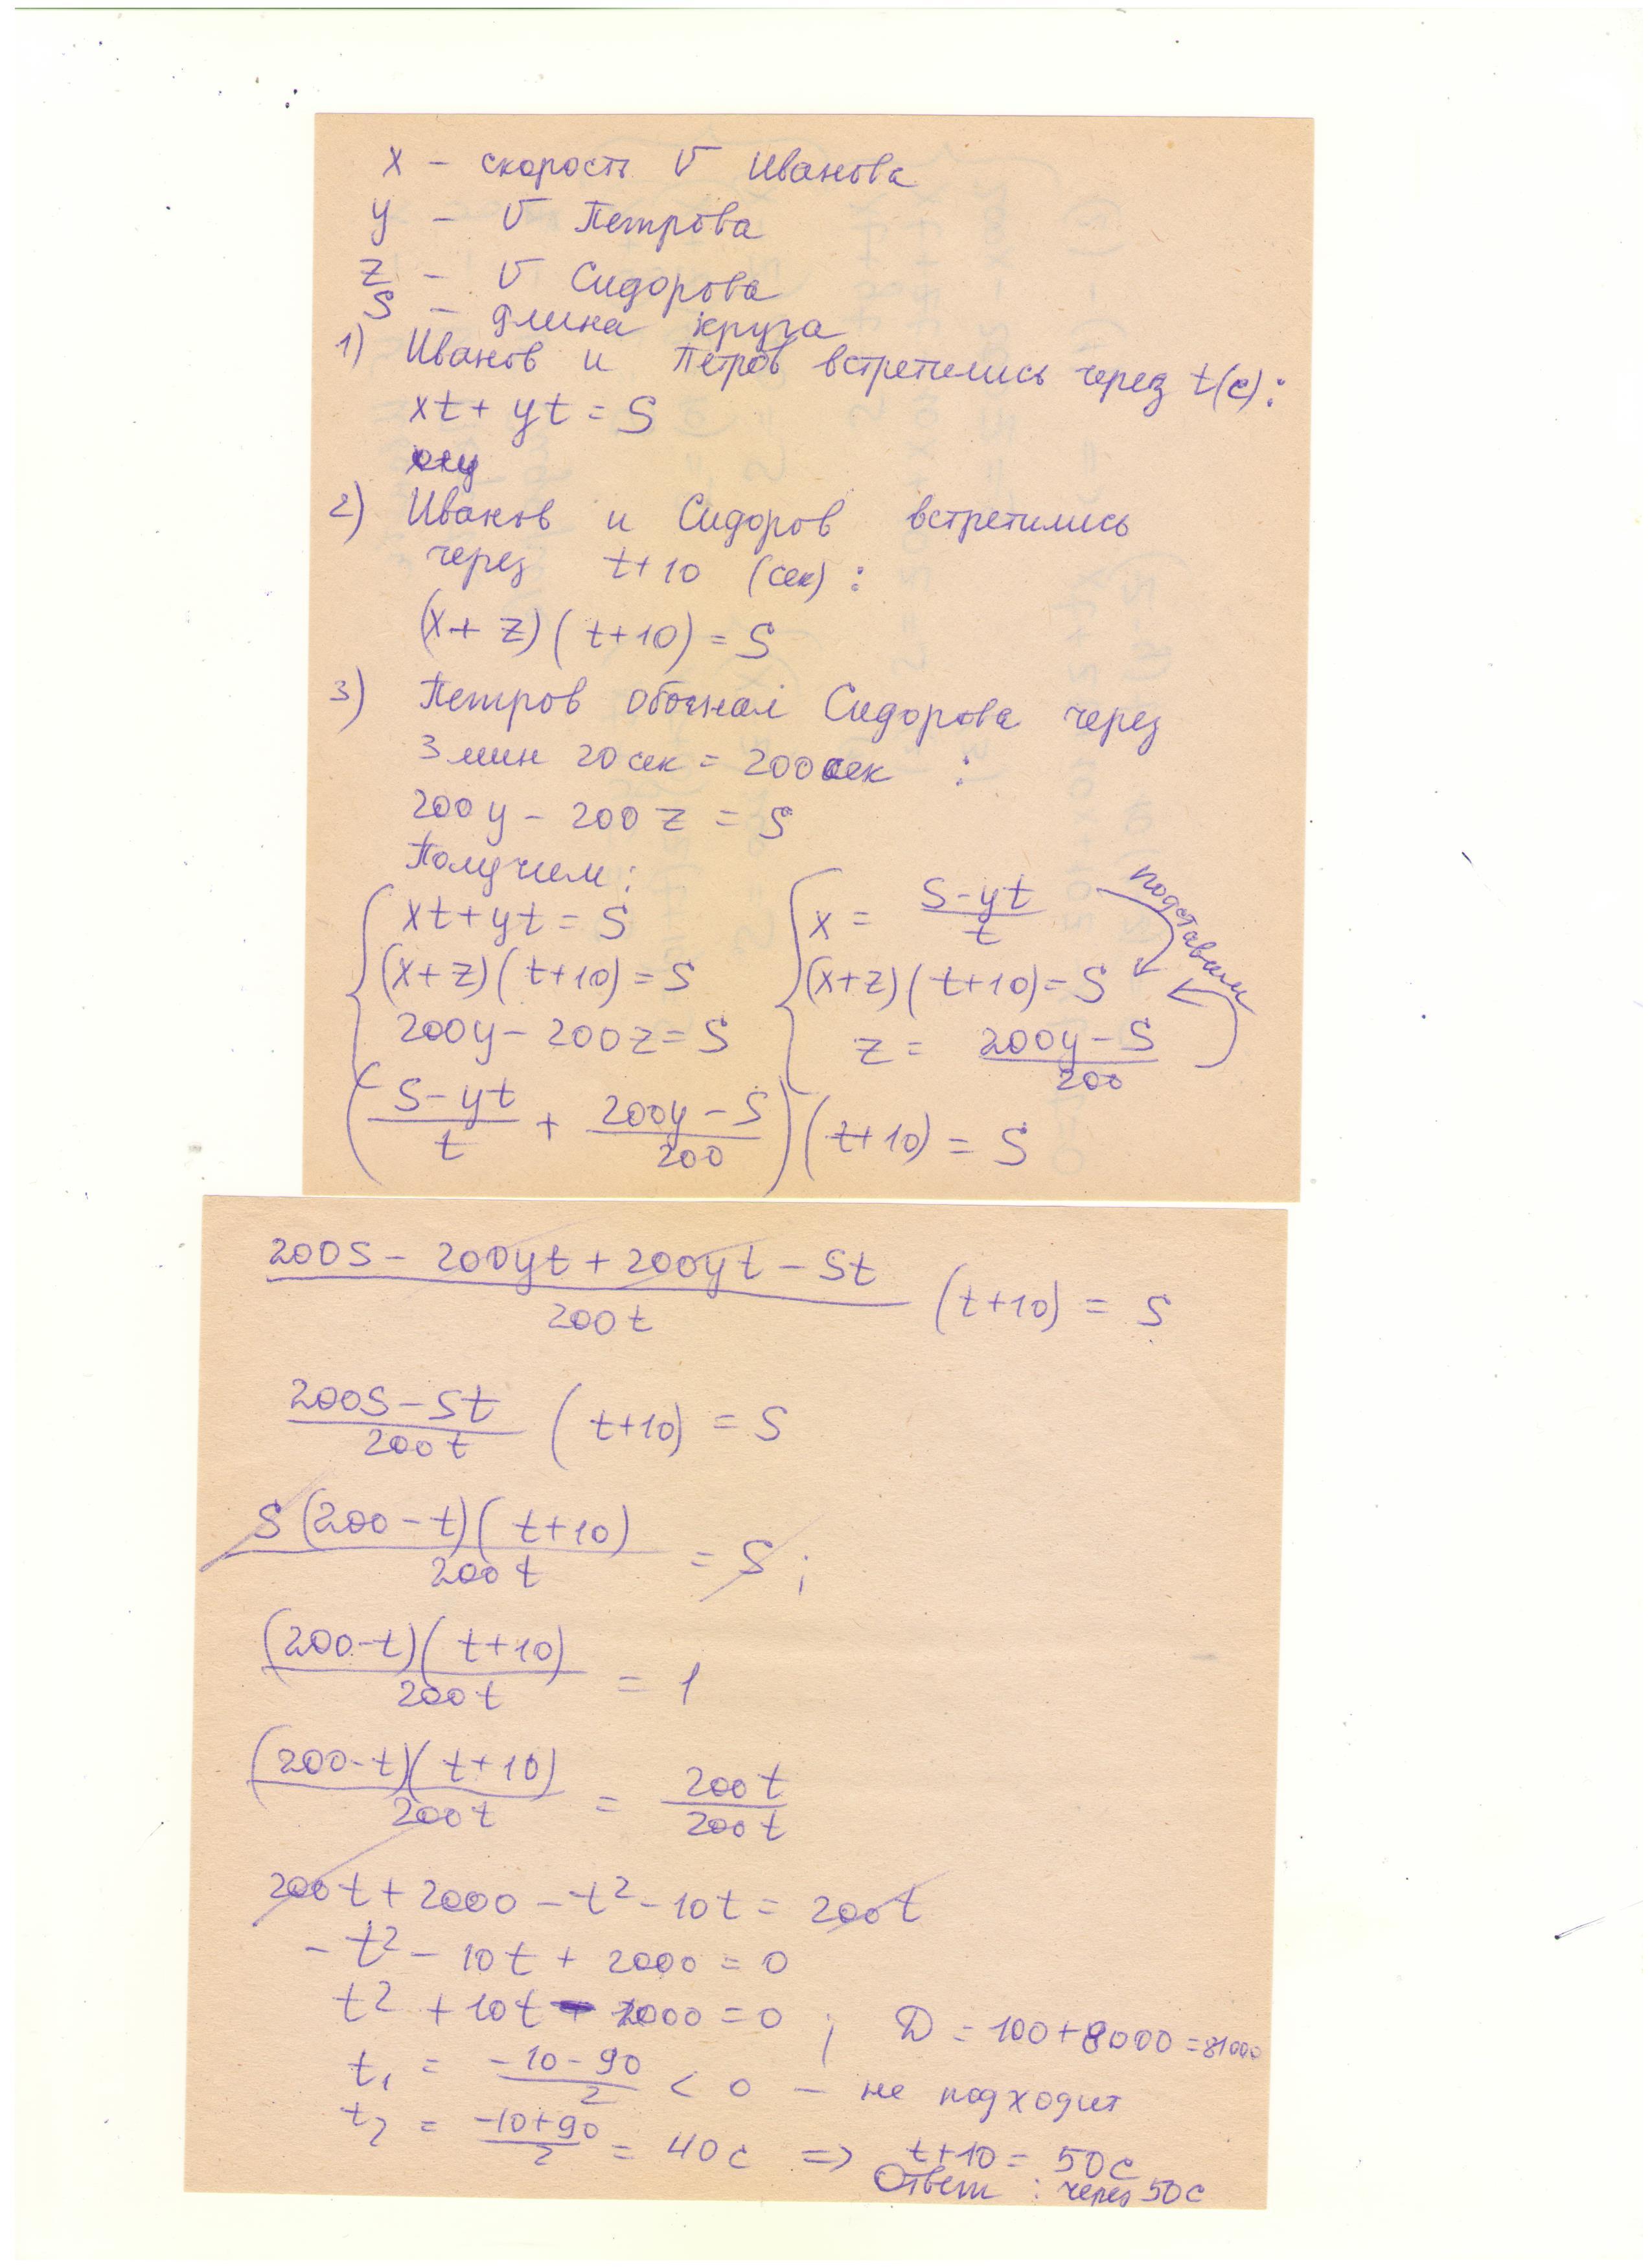 x – скорость V Иванова
y – V Петрова
z – V Сидорова
S – длина круга
1) Иванов и Петров встретились через t(с):
xt + yt = S
2) Иванов и Сидоров встретились
через t+10 (сек) :
(x + z)(t+10) = S
3) Петров обогнал Сидорова через
3 мин 20 сек = 200 сек :
200y – 200z = S
Получием:
xt + yt = S
(x+z)(t+10) = S
200y – 200z = S
x = (S-yt)/t
(x+z)(t+10) = S
z = (200y – S)/200
подставим
((S-yt)/t + (200y – S)/200)(t+10) = S
(200S – 200yt + 200yt – St)/200t (t+10) = S
(200S – St)/200t (t+10) = S
S(200-t)(t+10)/200t = S ;
(200-t)(t+10)/200t = 1
(200-t)(t+10)/200t = 200t/200t
200t + 2000 – t² – 10t = 200t
– t² – 10t + 2000 = 0
t² + 10t – 2000 = 0 ; D = 100 + 8000 = 81000
t₁ = (-10-90)/2 < 0 – не подходит
t₂ = (-10+90)/2 = 40c => t+10 = 50c
Ответ : через 50c